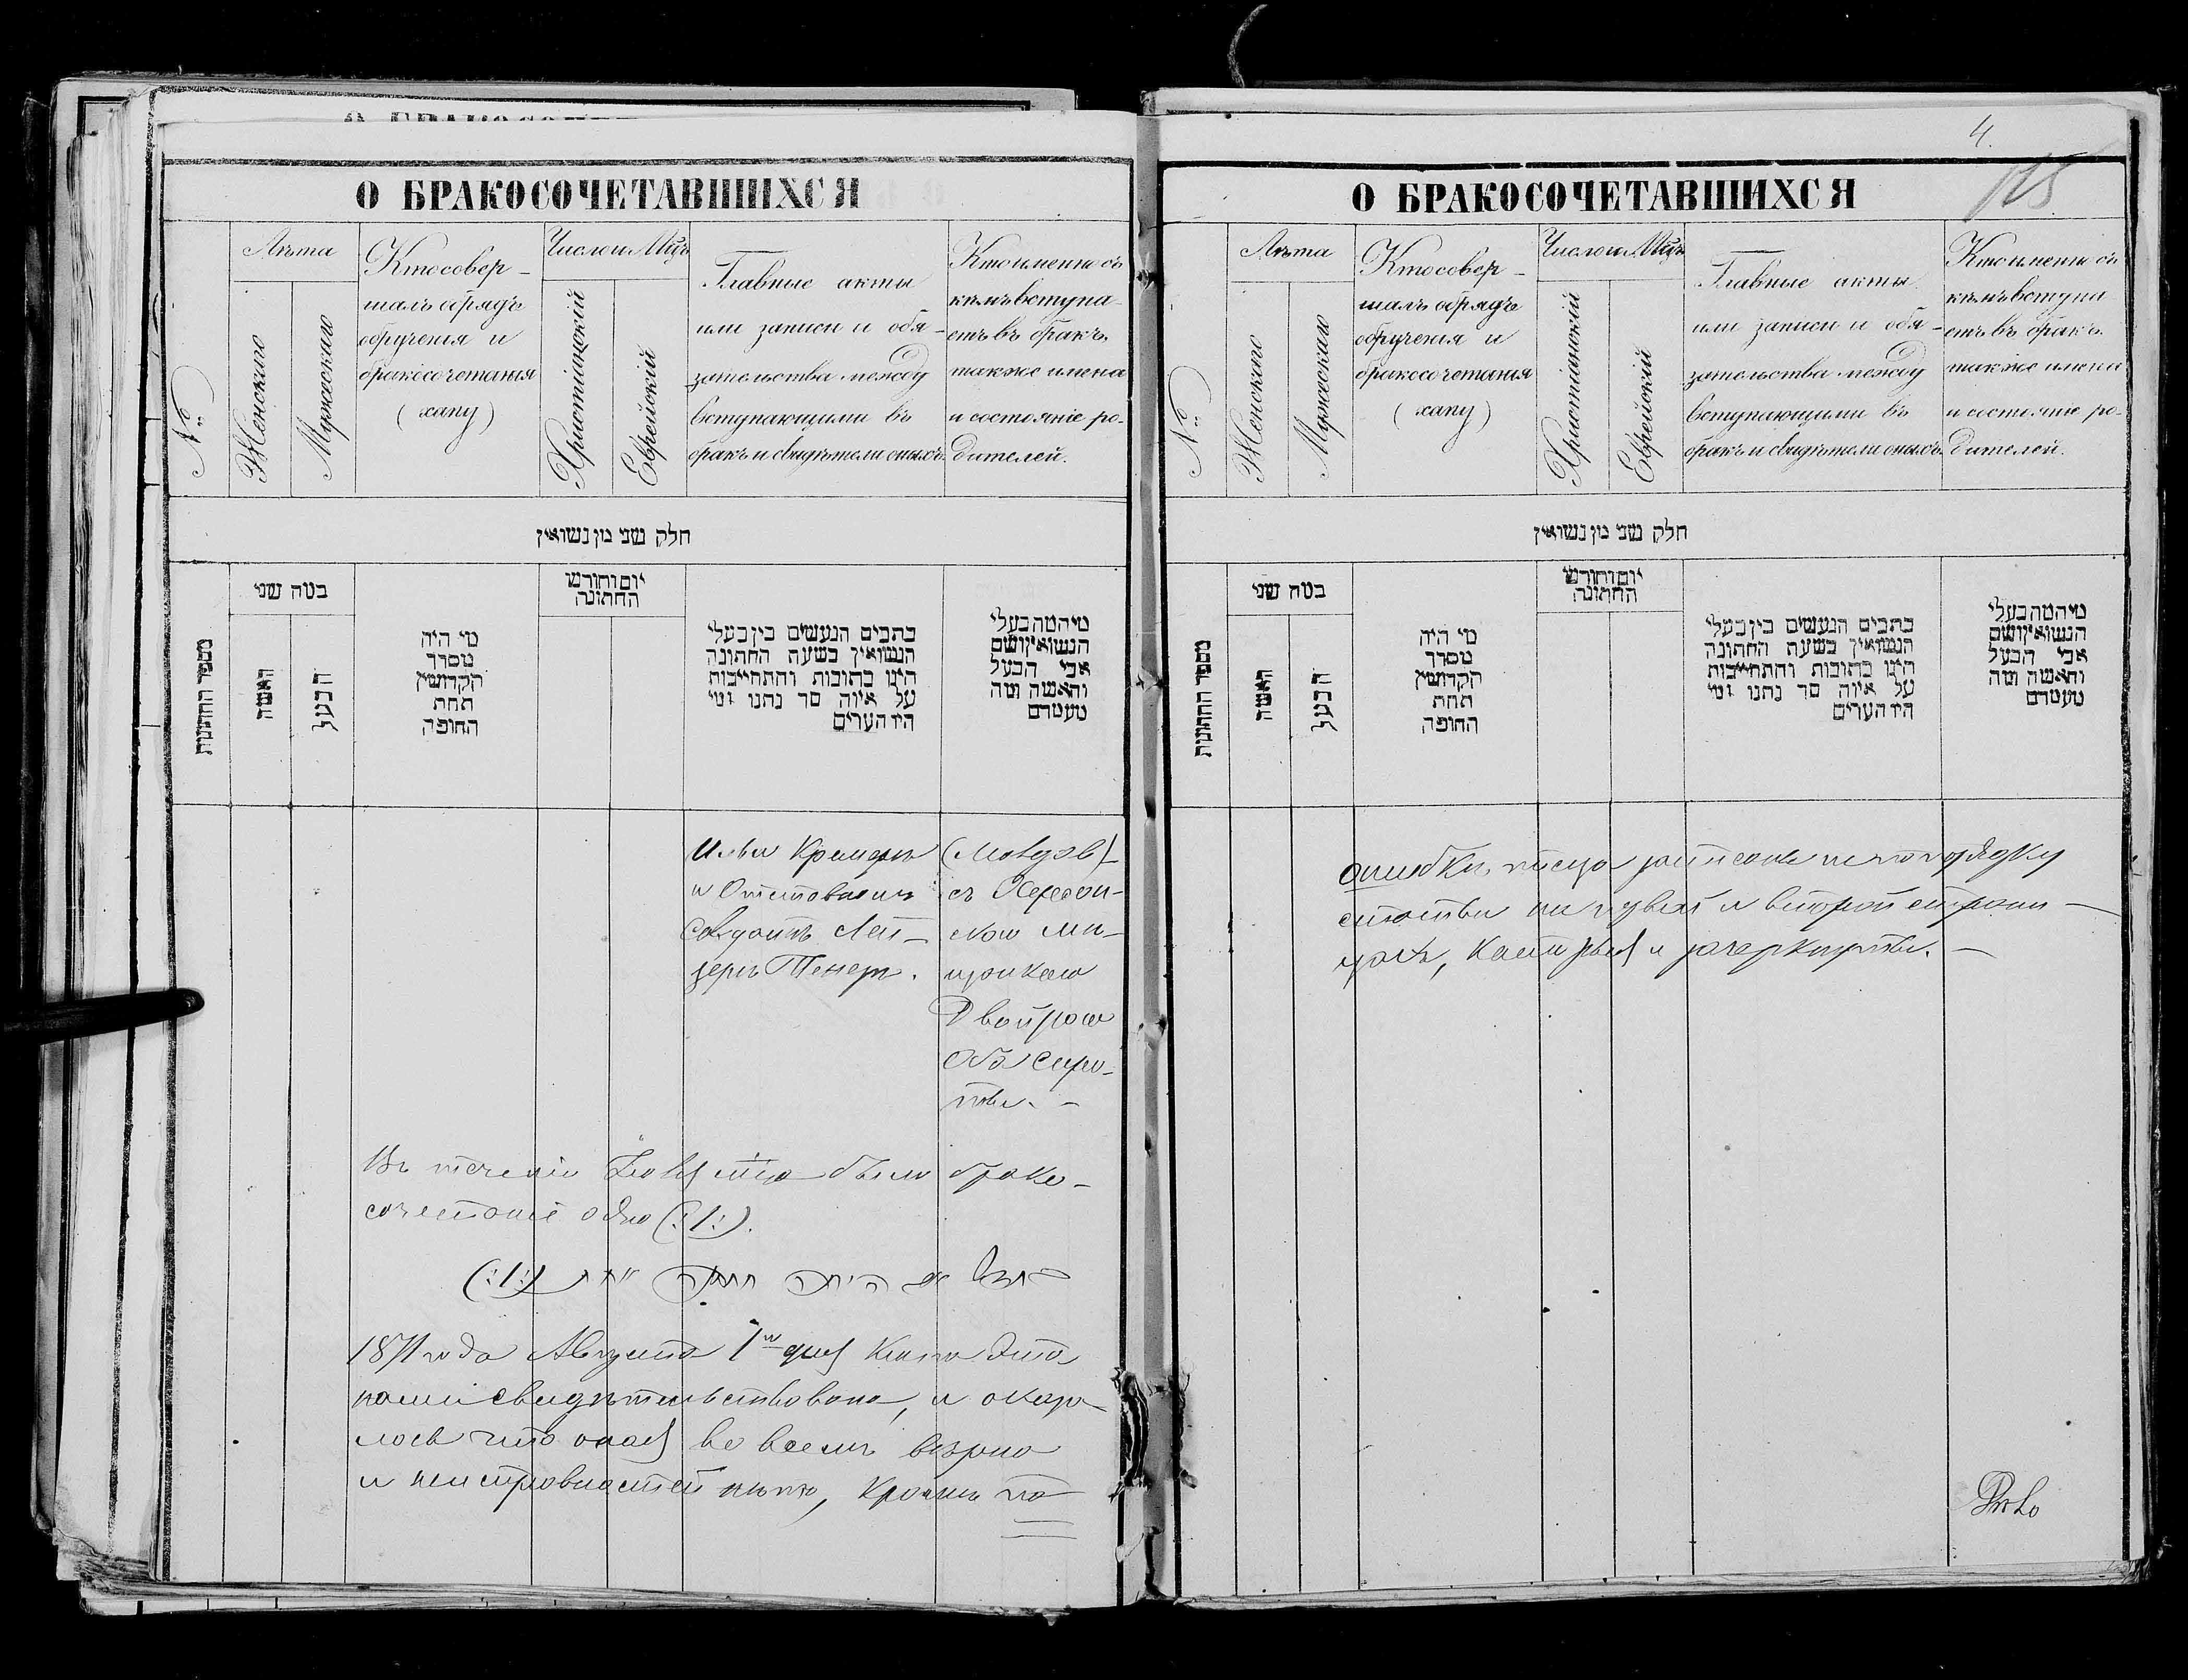 О БРАКОСОЧЕТАВШИХСЯ
№
Лѣта
Женскаго
Мужескаго
Кто совер-
шалъ обрядъ
обрученія и
бракосочетанія
(хапу)
Число и Мѣц
Христіанскій
Еврейскій
Главные акты
или записи и обя-
зательства между
вступающими въ
бракъ и свидѣтели оныхъ.
Кто именно съ
кѣмъ вступа-
етъ въ бракъ.
также имена
и состояніе ро-
дителей.
חלק שני מן נשואין
מספר החתונות
במה שני
האשה
הבעל
מי היה
מסדר
הקדושין
תחת
החופה
יום וחודש
החתונה
כתבים הנעשים בין בעלי
הנשואין בשעת החתונה
היינו כתובות והתחייבות
על איזה סך נתנו ומי
היו העדים
מי המה בעלי
הנשואין ושם
אבי הבעל
והאשה ומה
מעמדם
Илья Крамеръ
и
зеръ
съ Херсон-
скою мѣ-
щанкою
Двойрою
Оба сиро-
ты. -
Въ теченіи Іюля мѣца было брако-
сочетаніе одно (:1:).
היתה חתונה אחת (:1:)
1871 года Августа 1го дня книга эта
нами свидѣтельствована, и оказа-
лось что оная во всемъ вѣрна
и неисправностей нѣтъ, кромѣ по
4.
115
О БРАКОСОЧЕТАВШИХСЯ
№
Лѣта
Женскаго
Мужескаго
Кто совер-
шалъ обрядъ
обрученія и
бракосочетанія
(хапу)
Число и Мѣц
Христіанскій
Еврейскій
Главные акты
или записи и обя-
зательства между
вступающими въ
бракъ и свидѣтели оныхъ.
Кто именно съ
кѣмъ вступа
етъ въ бракъ.
также имена
и состояніе ро-
дителей.
חלק שני מן נשואין
מספר החתונות
במה שני
האשה
הבעל
מי היה
מסדר
הקדושין
תחת
החופה
יום וחודש
החתונה
כתבים הנעשים בין בעלי
הנשואין בשעת החתונה
היינו כתובות והתחייבות
על איזה סך נתנו ומי
היו העדים
מי המה בעלי
הנשואין ושם
אבי הבעל
והאשה ומה
מעמדם
ошибки писца записаны не по порядку
статьи на первой и второй страни-
цахъ, каторыя и зачеркнуты. -